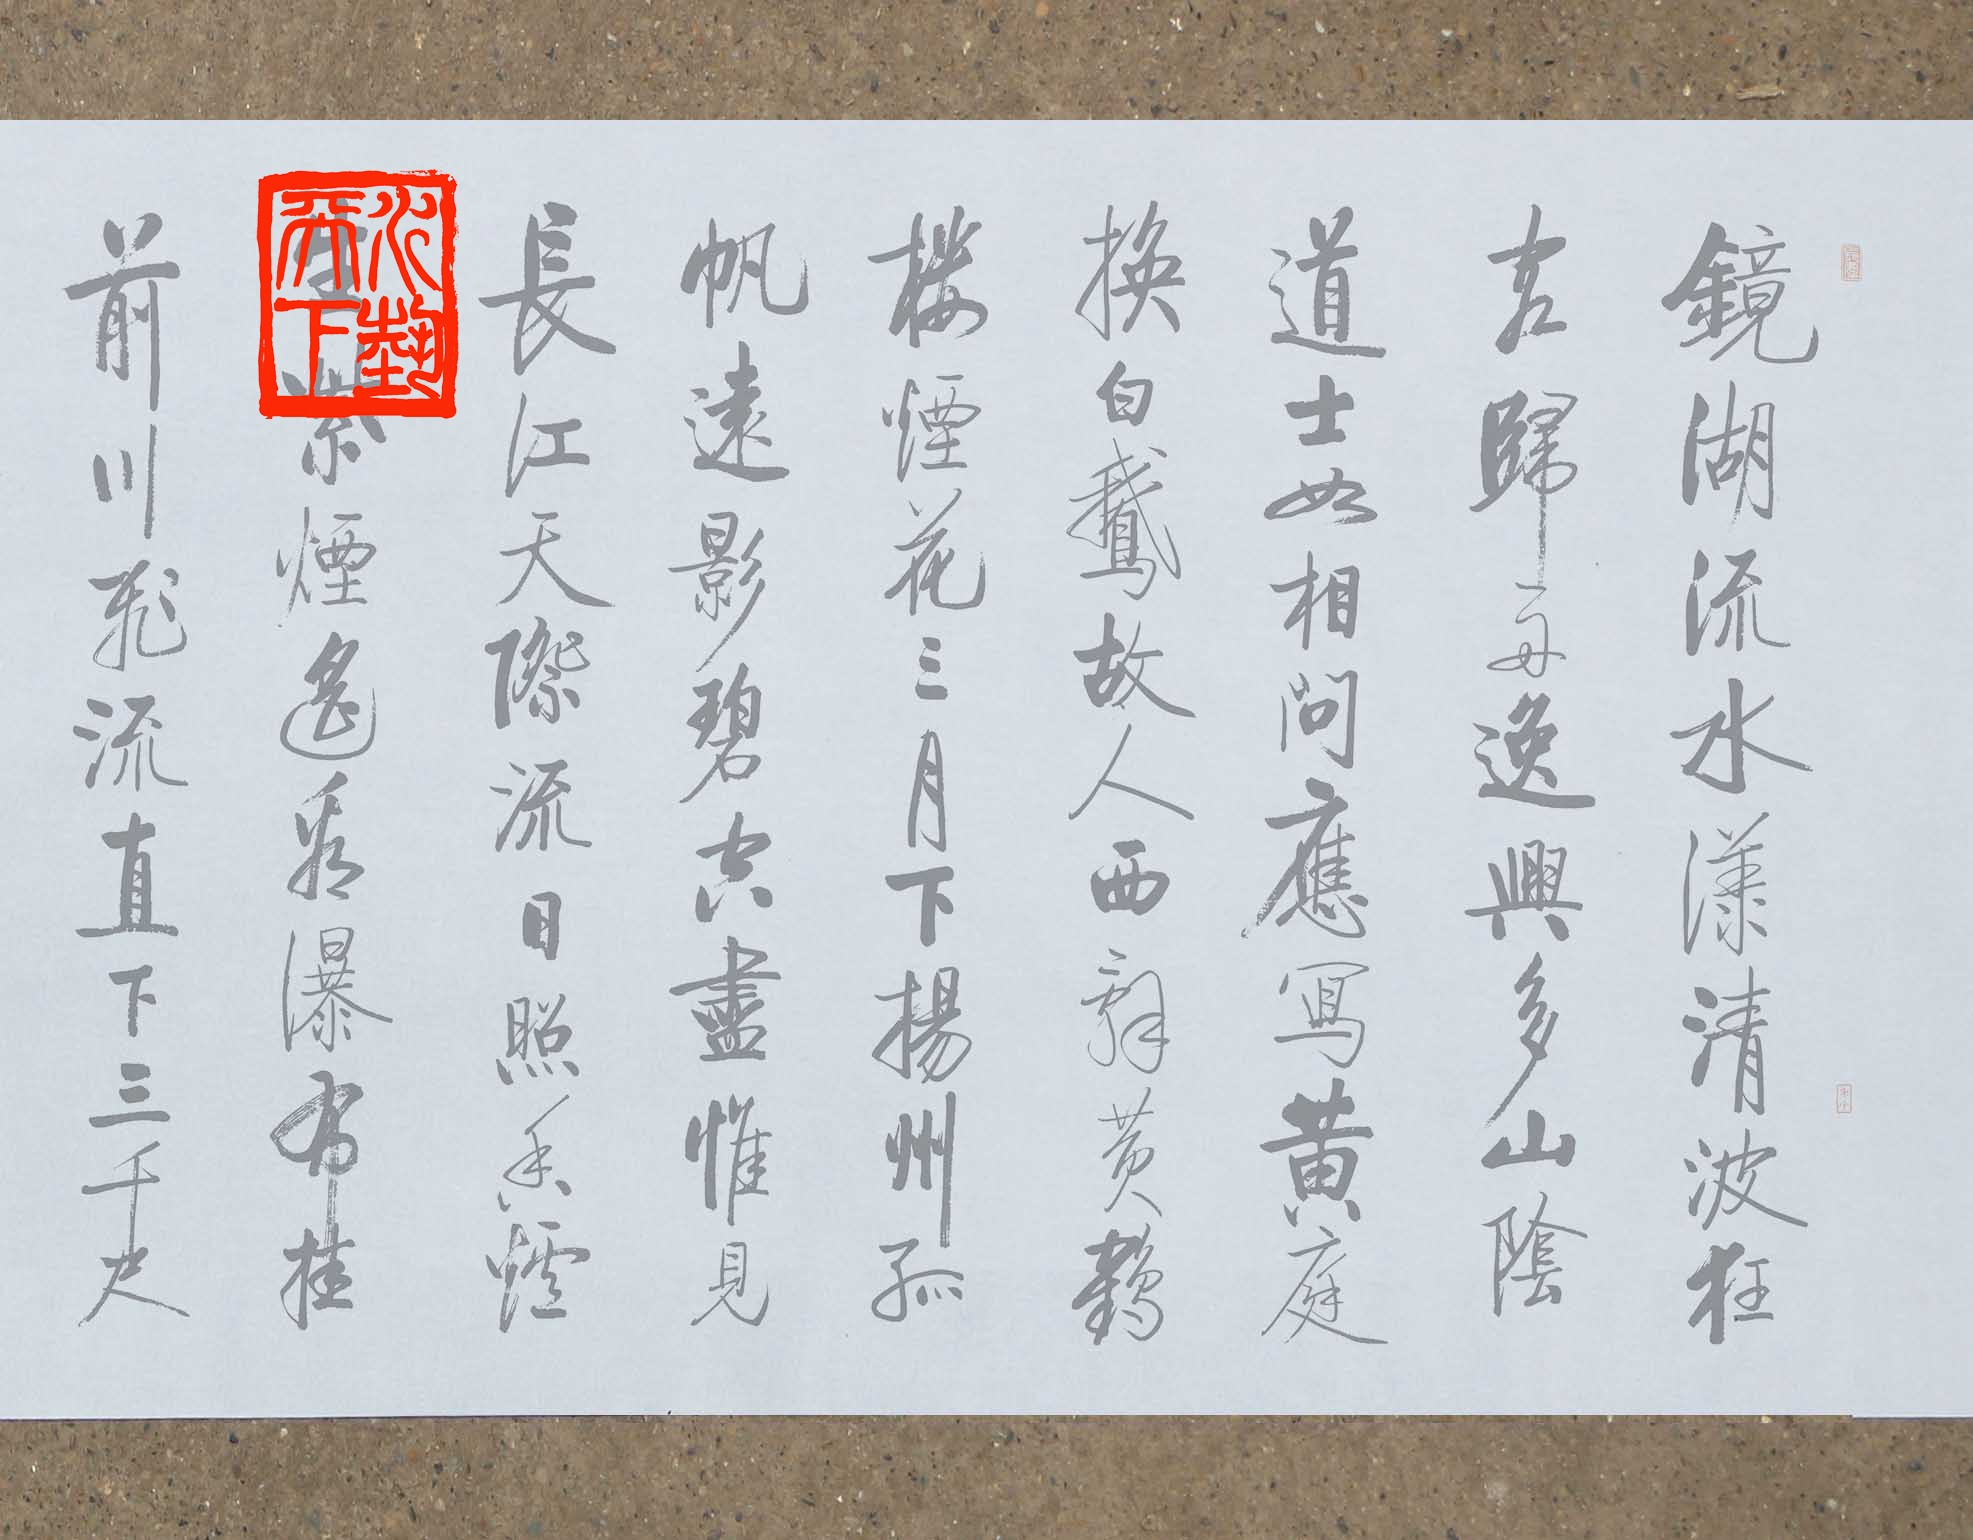 鏡湖流水漾清波狂
客歸舟逸興多山陰
道士如相問應寫黄庭
換白鵞故人西辭黄鶴
樓煙花三月下揚州孤
帆遠影碧空盡惟見
長江天際流日照香爐
生紫煙遙看瀑布挂
前川飛流直下三千尺